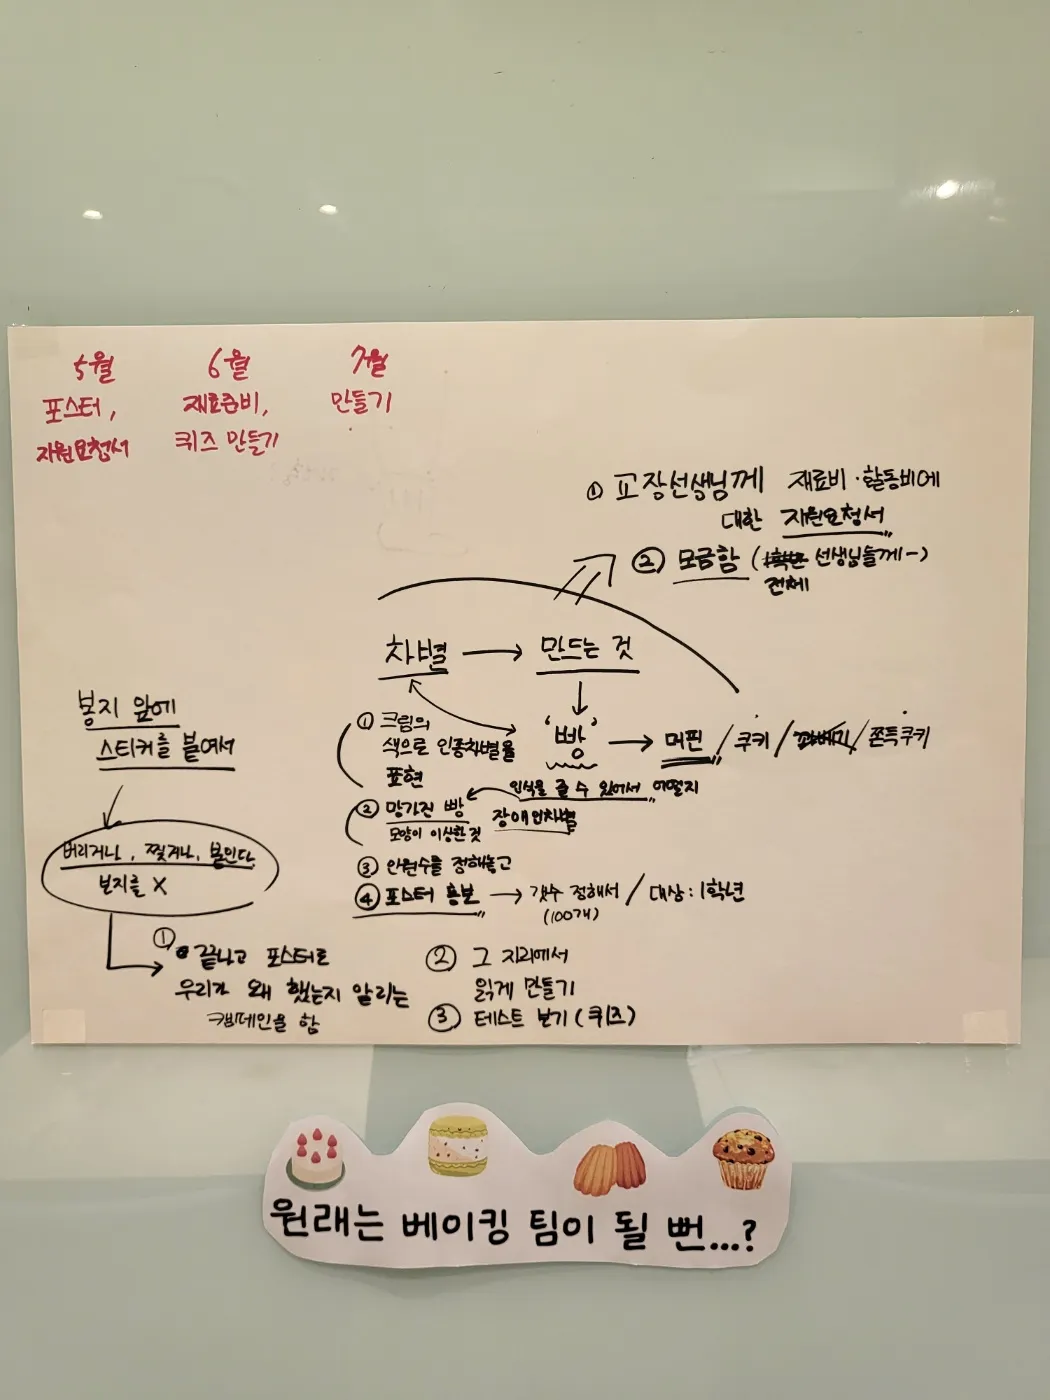 5월
포스터,
지원요청서
6월
재료준비,
퀴즈 만들기
7월
만들기
① 교장선생님께 재료비·활동비에
대한 지원요청서
② 모금함 (1학년 선생님들께-)
전체
차별 → 만드는 것
'빵' → 머핀 / 쿠키 / 꽈배기 / 쫀득쿠키
① 크림의
색으로 인종차별을
표현
인식을 줄 수 있어서 어떨지
② 망가진 빵 장애인차별
모양이 이상한 것
③ 인원수를 정해놓고
④ 포스터 홍보 → 갯수 정해서 / 대상: 1학년
(100개)
봉지 앞에
스티커를 붙여서
버리거나, 찢거나, 붙인다
보지를 X
① 끝나고 포스터로
우리가 왜 했는지 알리는
캠페인을 함
② 그 자리에서
읽게 만들기
③ 테스트 보기 (퀴즈)
원래는 베이킹 팀이 될 뻔...?